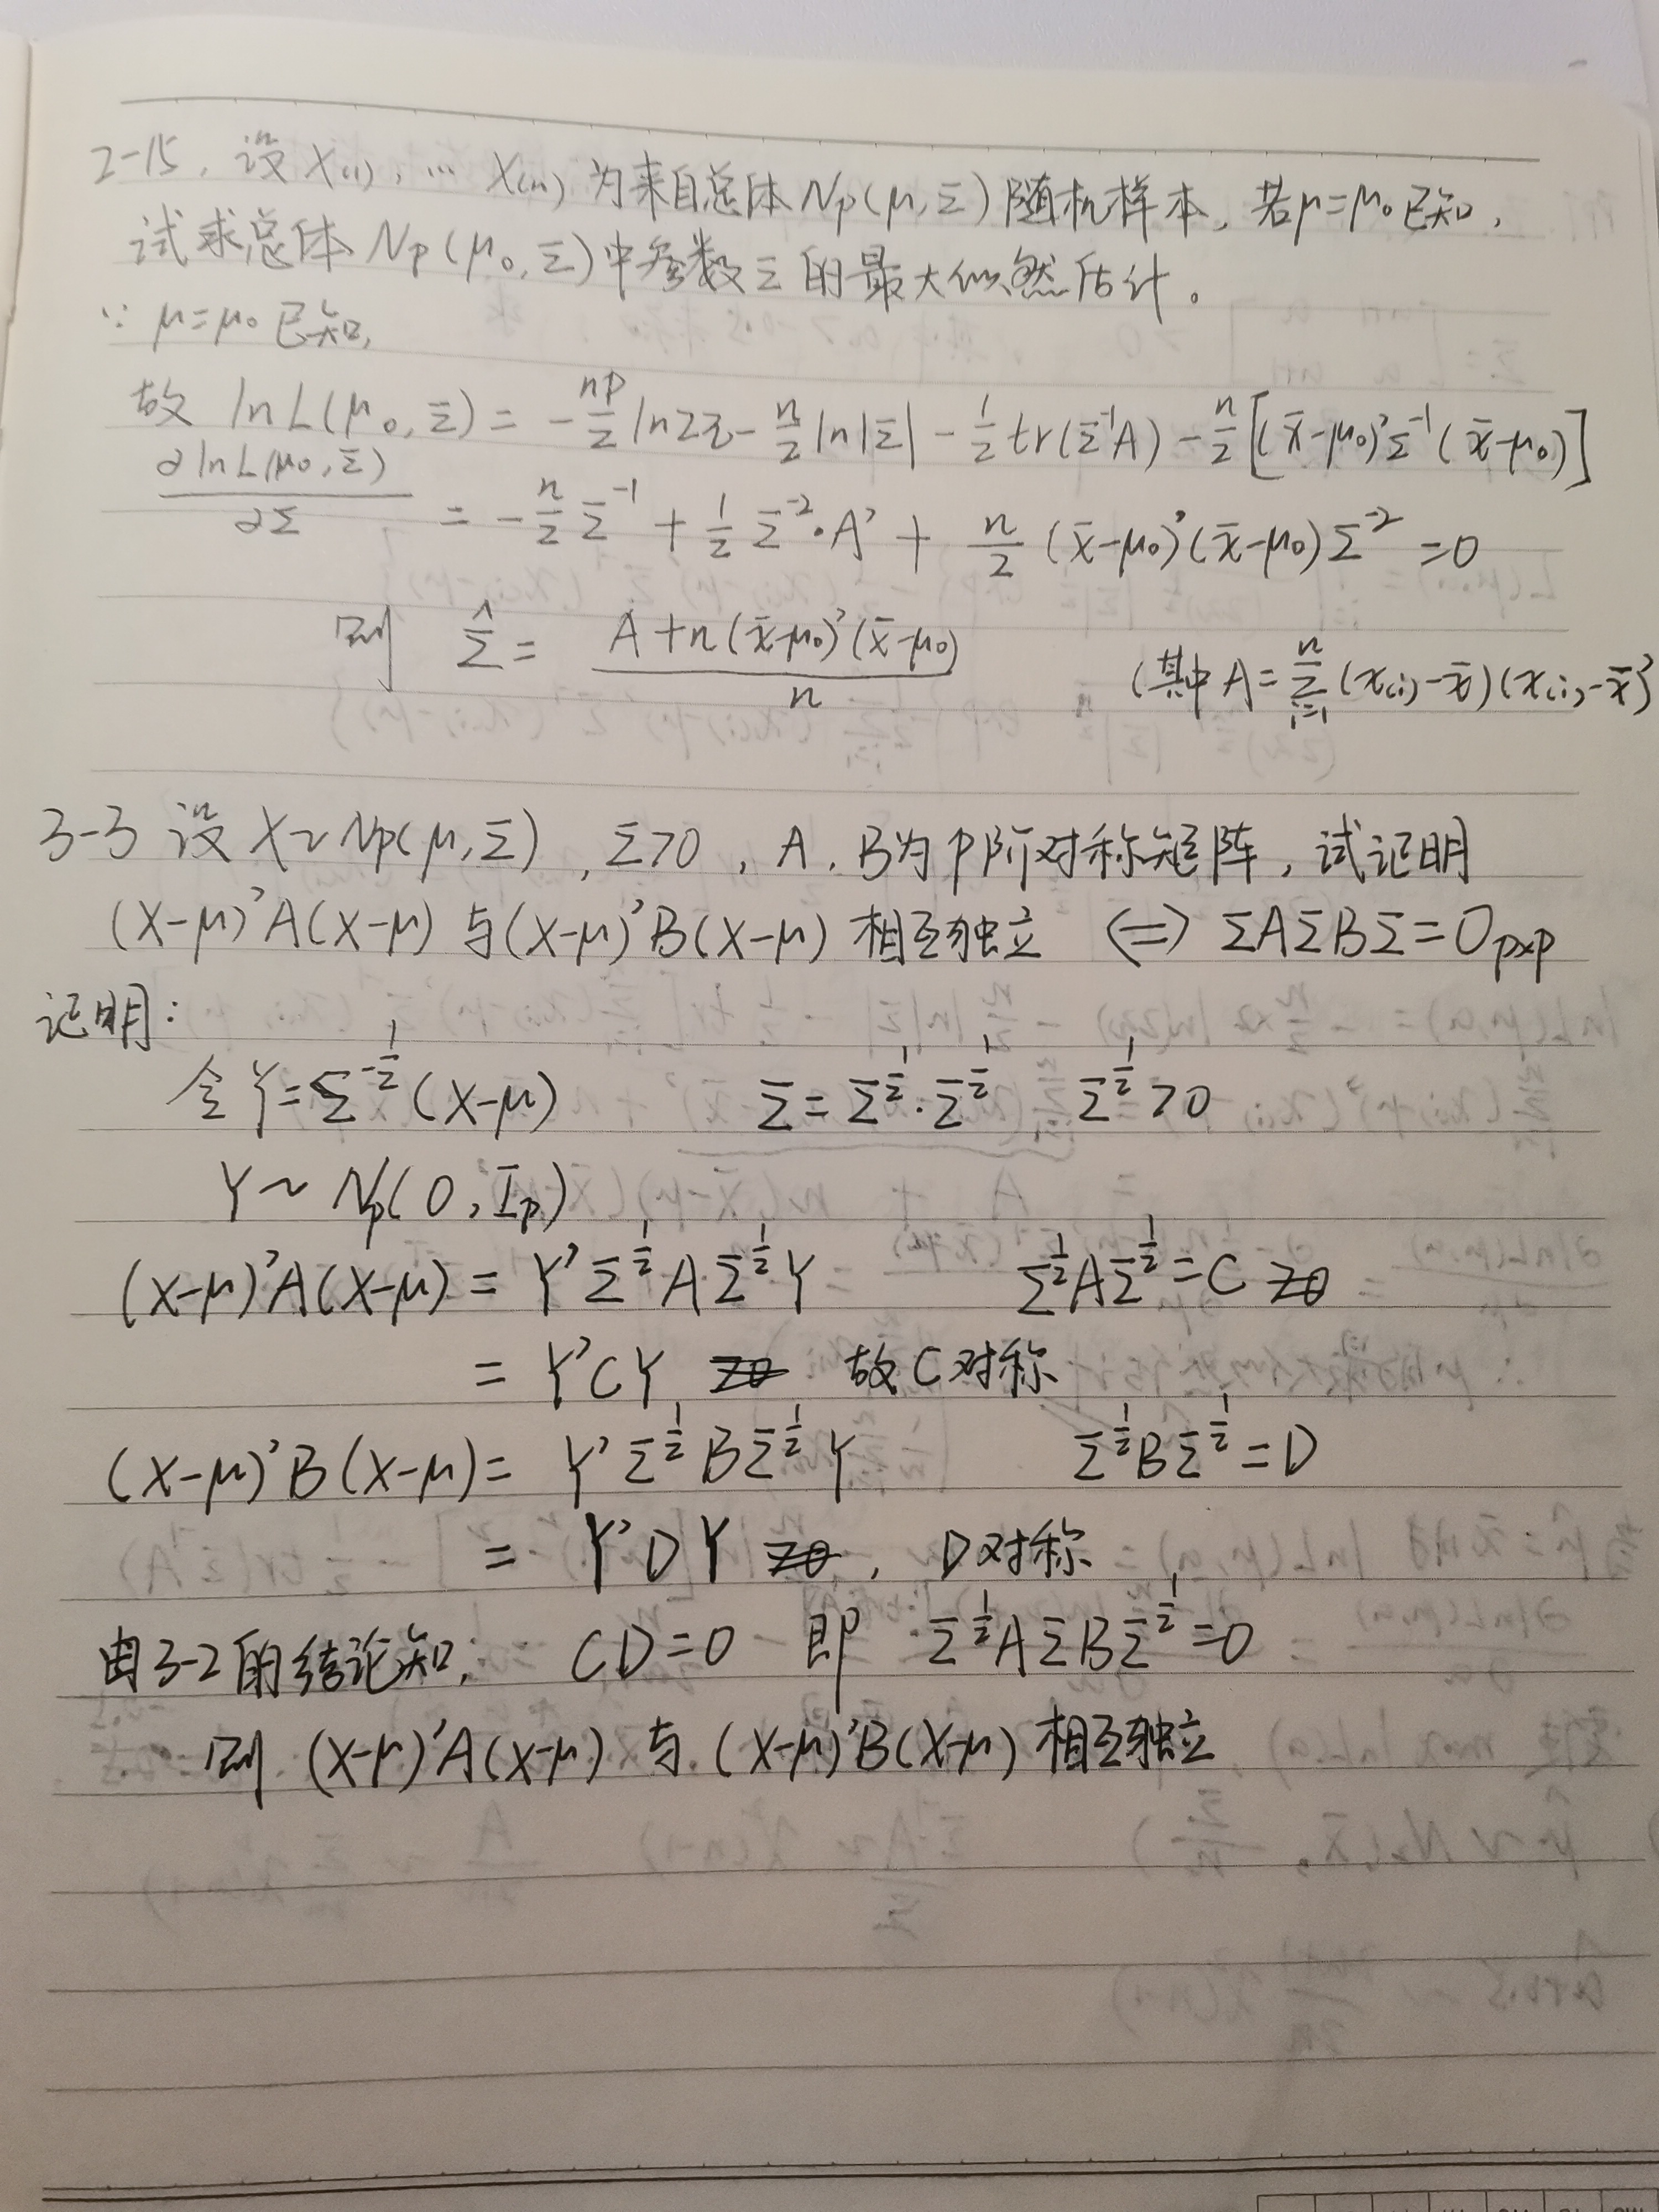 2-15. 设 X(1), … X(n) 为来自总体 Np(μ,Σ) 随机样本, 若μ=μ₀已知,
试求总体 Np(μ₀,Σ)中参数Σ的最大似然估计。
∵ μ=μ₀ 已知,
故 lnL(μ₀,Σ) = -np/2 ln2π - n/2 ln|Σ| - 1/2 tr(Σ⁻¹A) - n/2 [(x̄-μ₀)'Σ⁻¹(x̄-μ₀)]
∂lnL(μ₀,Σ)/∂Σ = -n/2 Σ⁻¹ + 1/2 Σ⁻²·A' + n/2 (x̄-μ₀)'(x̄-μ₀)Σ⁻² =0
则 Σ̂ = (A+n(x̄-μ₀)'(x̄-μ₀))/n (其中 A=Σⁿᵢ₌₁(x(i)-x̄)(x(i)-x̄)'
3-3 设 X~Np(μ,Σ), Σ>0, A、B为P阶对称矩阵, 试证明
(X-μ)'A(X-μ) 与(X-μ)'B(X-μ) 相互独立 <=> ΣAΣBΣ=O p×p
证明:
令 Y=Σ^(-1/2)(X-μ) Σ=Σ^(1/2)·Σ^(1/2), Σ^(1/2)>0
Y ~ Np(0,Ip)
(X-μ)'A(X-μ) = Y'Σ^(1/2)AΣ^(1/2)Y Σ^(1/2)AΣ^(1/2)=C
= Y'CY 故C对称
(X-μ)'B(X-μ)= Y'Σ^(1/2)BΣ^(1/2)Y Σ^(1/2)BΣ^(1/2)=D
= Y'DY , D对称
由3-2的结论知: CD=0 即 Σ^(1/2)AΣBΣ^(1/2)=0
则 (X-μ)'A(X-μ) 与 (X-μ)'B(X-μ) 相互独立